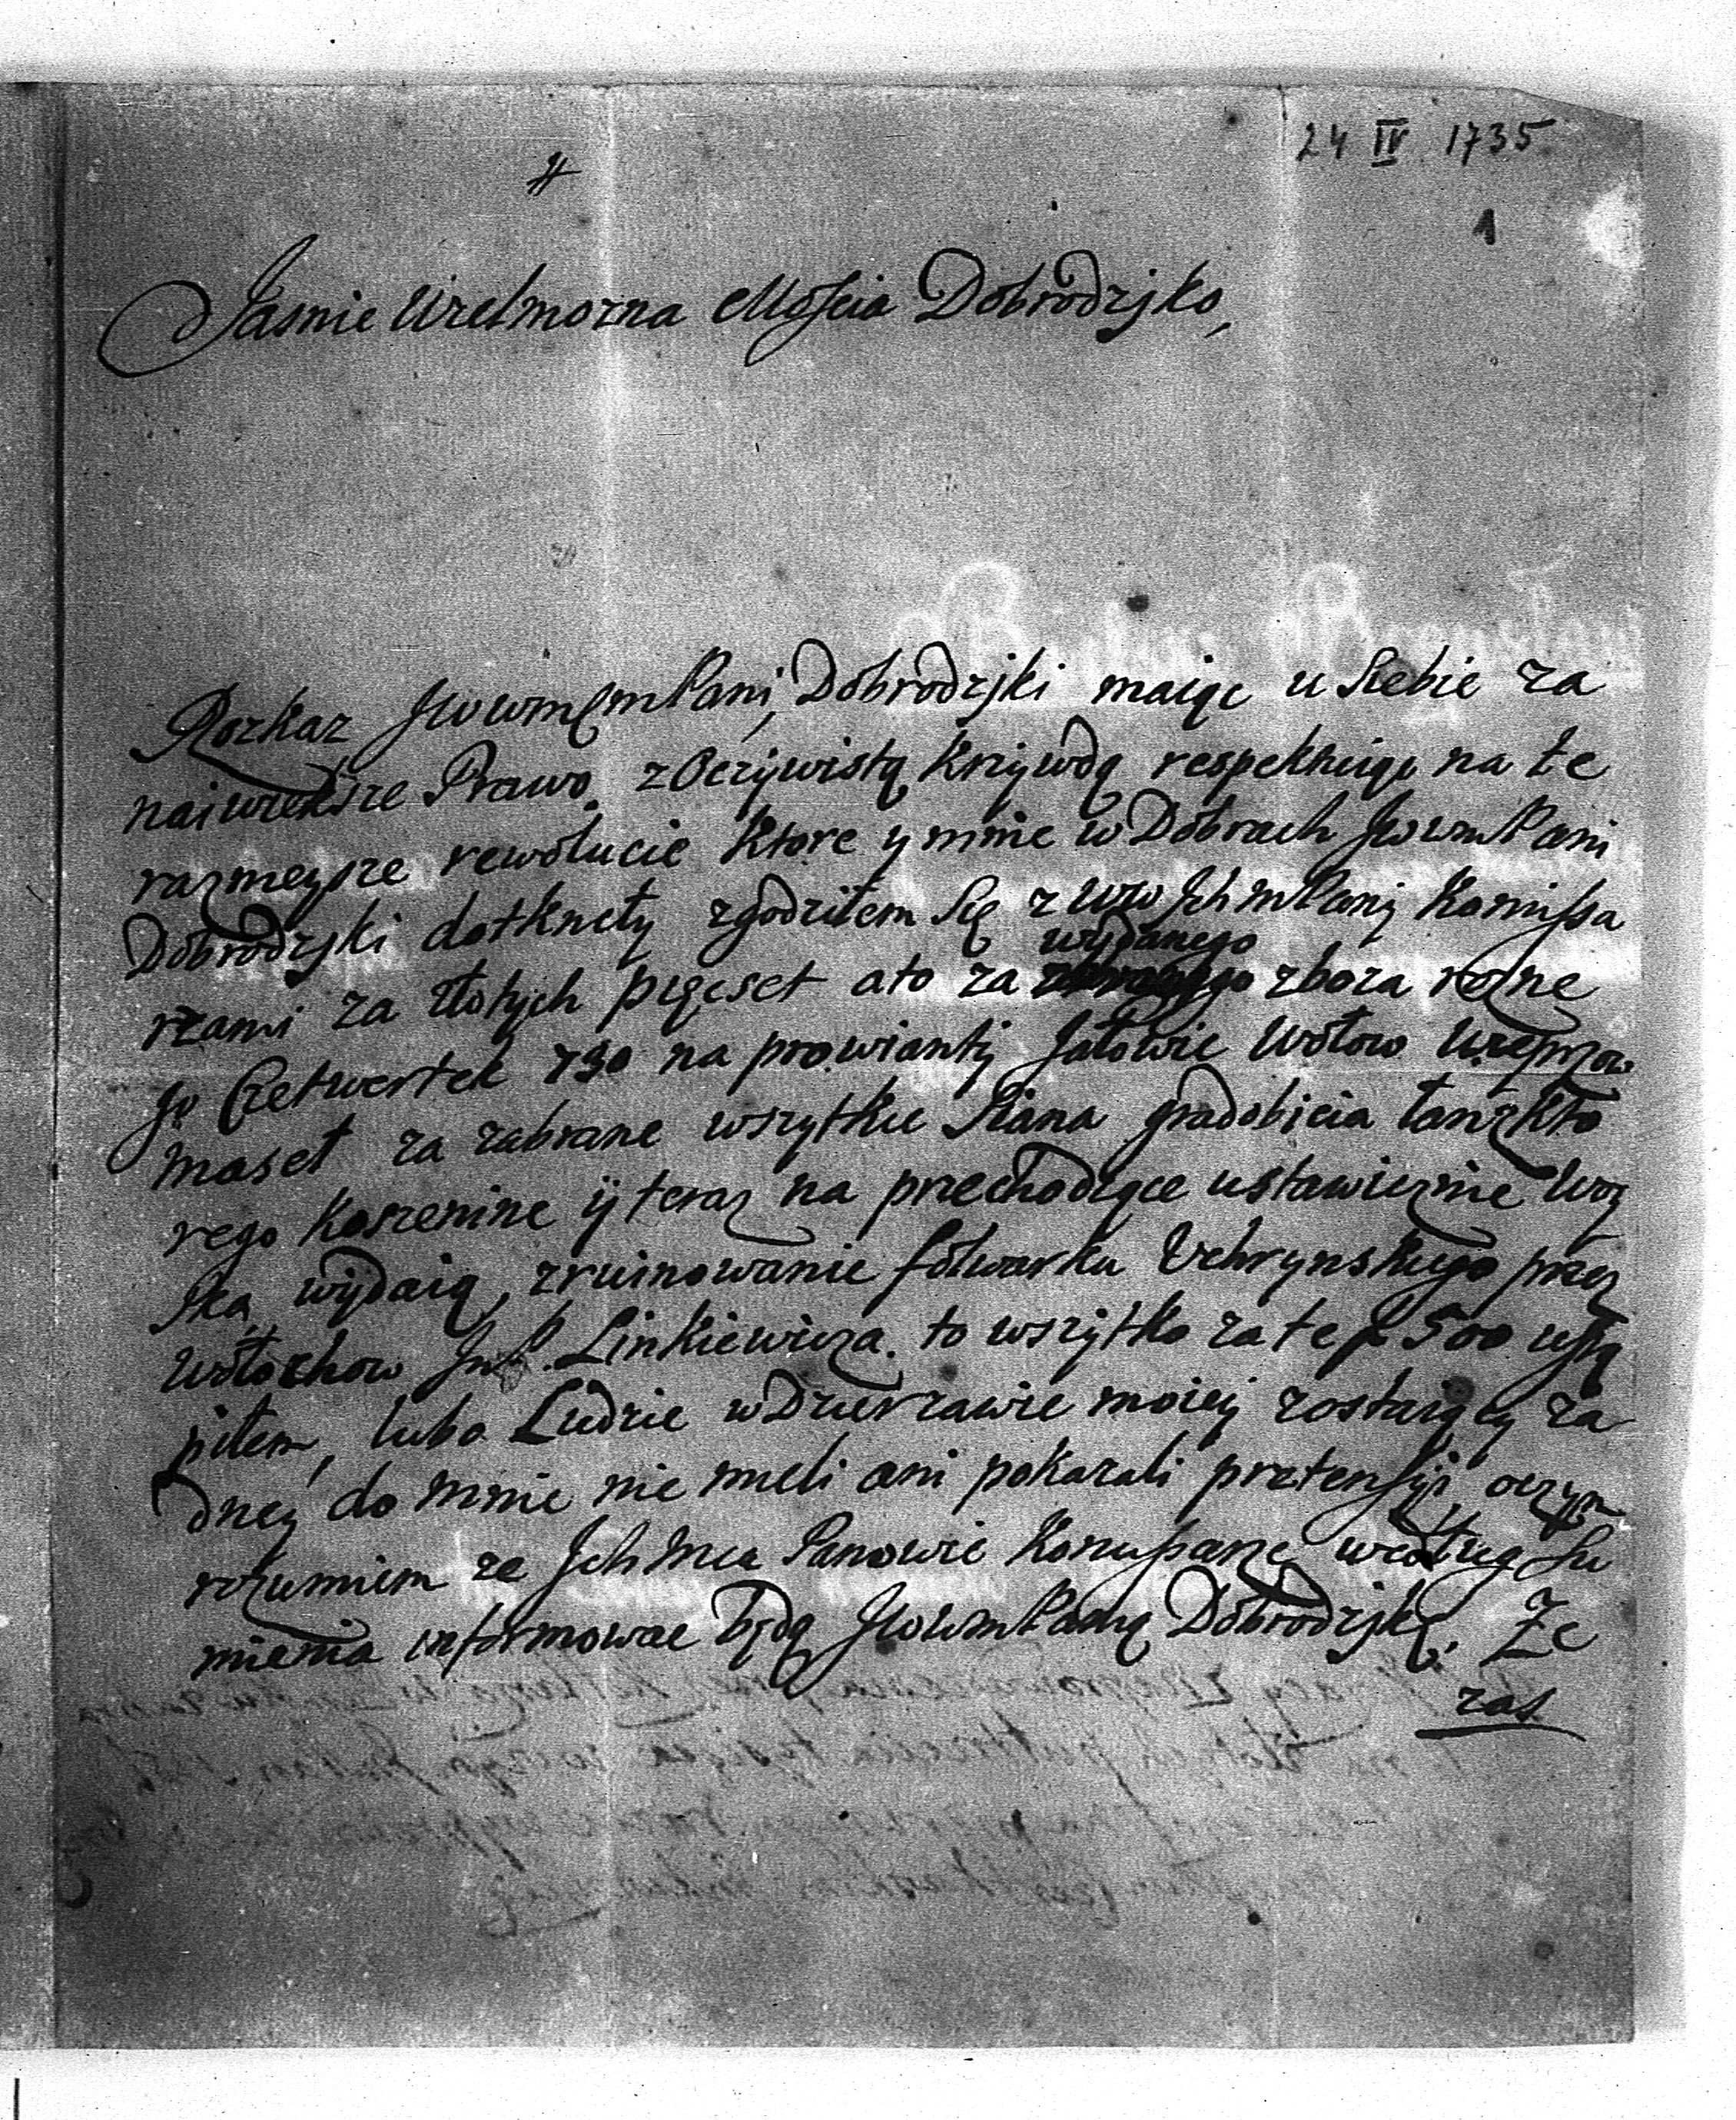 24 IV 1735
#
1
Jasnie Wielmozna Mościa Dobrodzjko,
Rozkaz JWWmPani, Dobrodzjki maiąc u siebie za
naiwieksze Prawo. z Oczywistą Krzywdą respektuiąc na te
raznieysze rewolucie Ktore y mnie w Dobrach JWWmPani
Dobrodzjki dotknety zgodziłem Się z Ww IchmPany Komissa
rzami za złotych pięcset a to za wydanego zboza rozne
go Czetwertek 730 na prowianty Jałowic Wołow Wieprzow
maseł za zabrane wszytkie Siana gradobicia łanz Kto
rego Koszenine ij teraz na przechodzące ustawicznie Woy
ska wydaią, zruinowanie folwarku Uchrynskiego przez
Wołochow JmP. Linkiewicza. to wszytko za te 500 ustą
piłem, lubo Ludzie w Dzierzawie moiey zostaiący za
dney do mnie nie mieli ani pokazali pretensyi oczym
rozumiem ze Ich Mcc Panowie Komissarze według Su
mienia informowac będą JWWmPanią Dobrodzjkę. Ze
zas